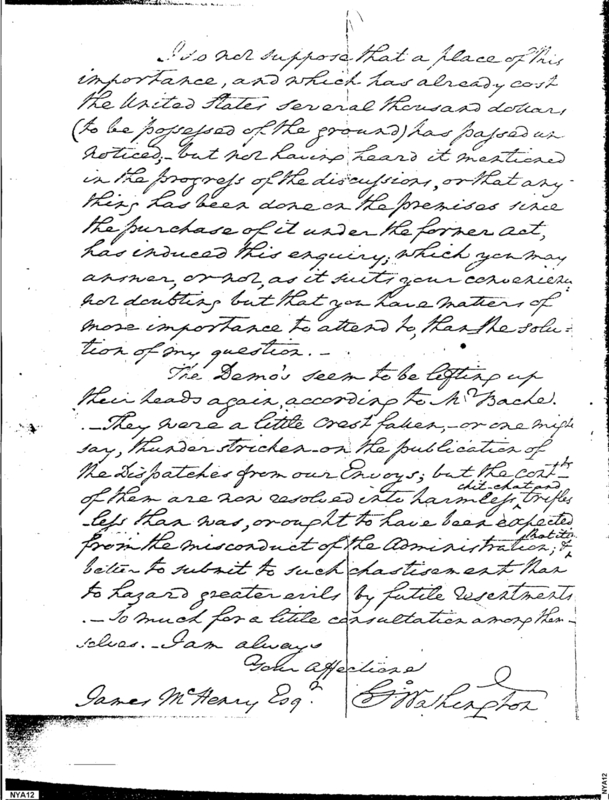 I do not suppose that a place of this
importance, and which has already cost
the United States several thousand dollars
(to be possessed of the ground) has passed un
noticed,- but not having heard it mentioned
in the progress of the discussions, or that any-
thing has been done on the premises since
the purchase of it under the former Act,
has induced this enquiry; which you may
answer, or not, as it suits your convenienc
not doubting but that you have matters of
more importance to attend to, than the solu-
tion of my question.-
The Demo's seem to be lifting up
their heads again, according to Mr Bache.
.-They were a little crest fallen,-or one migh
say, thunder stricken-on the publication of
the Dispatches from our Envoys; but the contts
of them are now resolved into harmless
chit-chat and
trifles
-less than was, or ought to have been expected
from the misconduct of the Administration; &
that it is
better to submit to such chastisement than
to hazard greater evils by futile resentments
.-So much for a little consultation among them-
selves.-I am always
Your Affectione
James McHenry Esqr.
Go: Washington
NYA12
NYA12